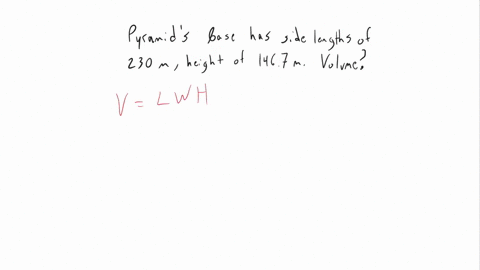 Pyramid's Base has side lengths of
230 m, height of 146.7 m. Volume?
V = LWH